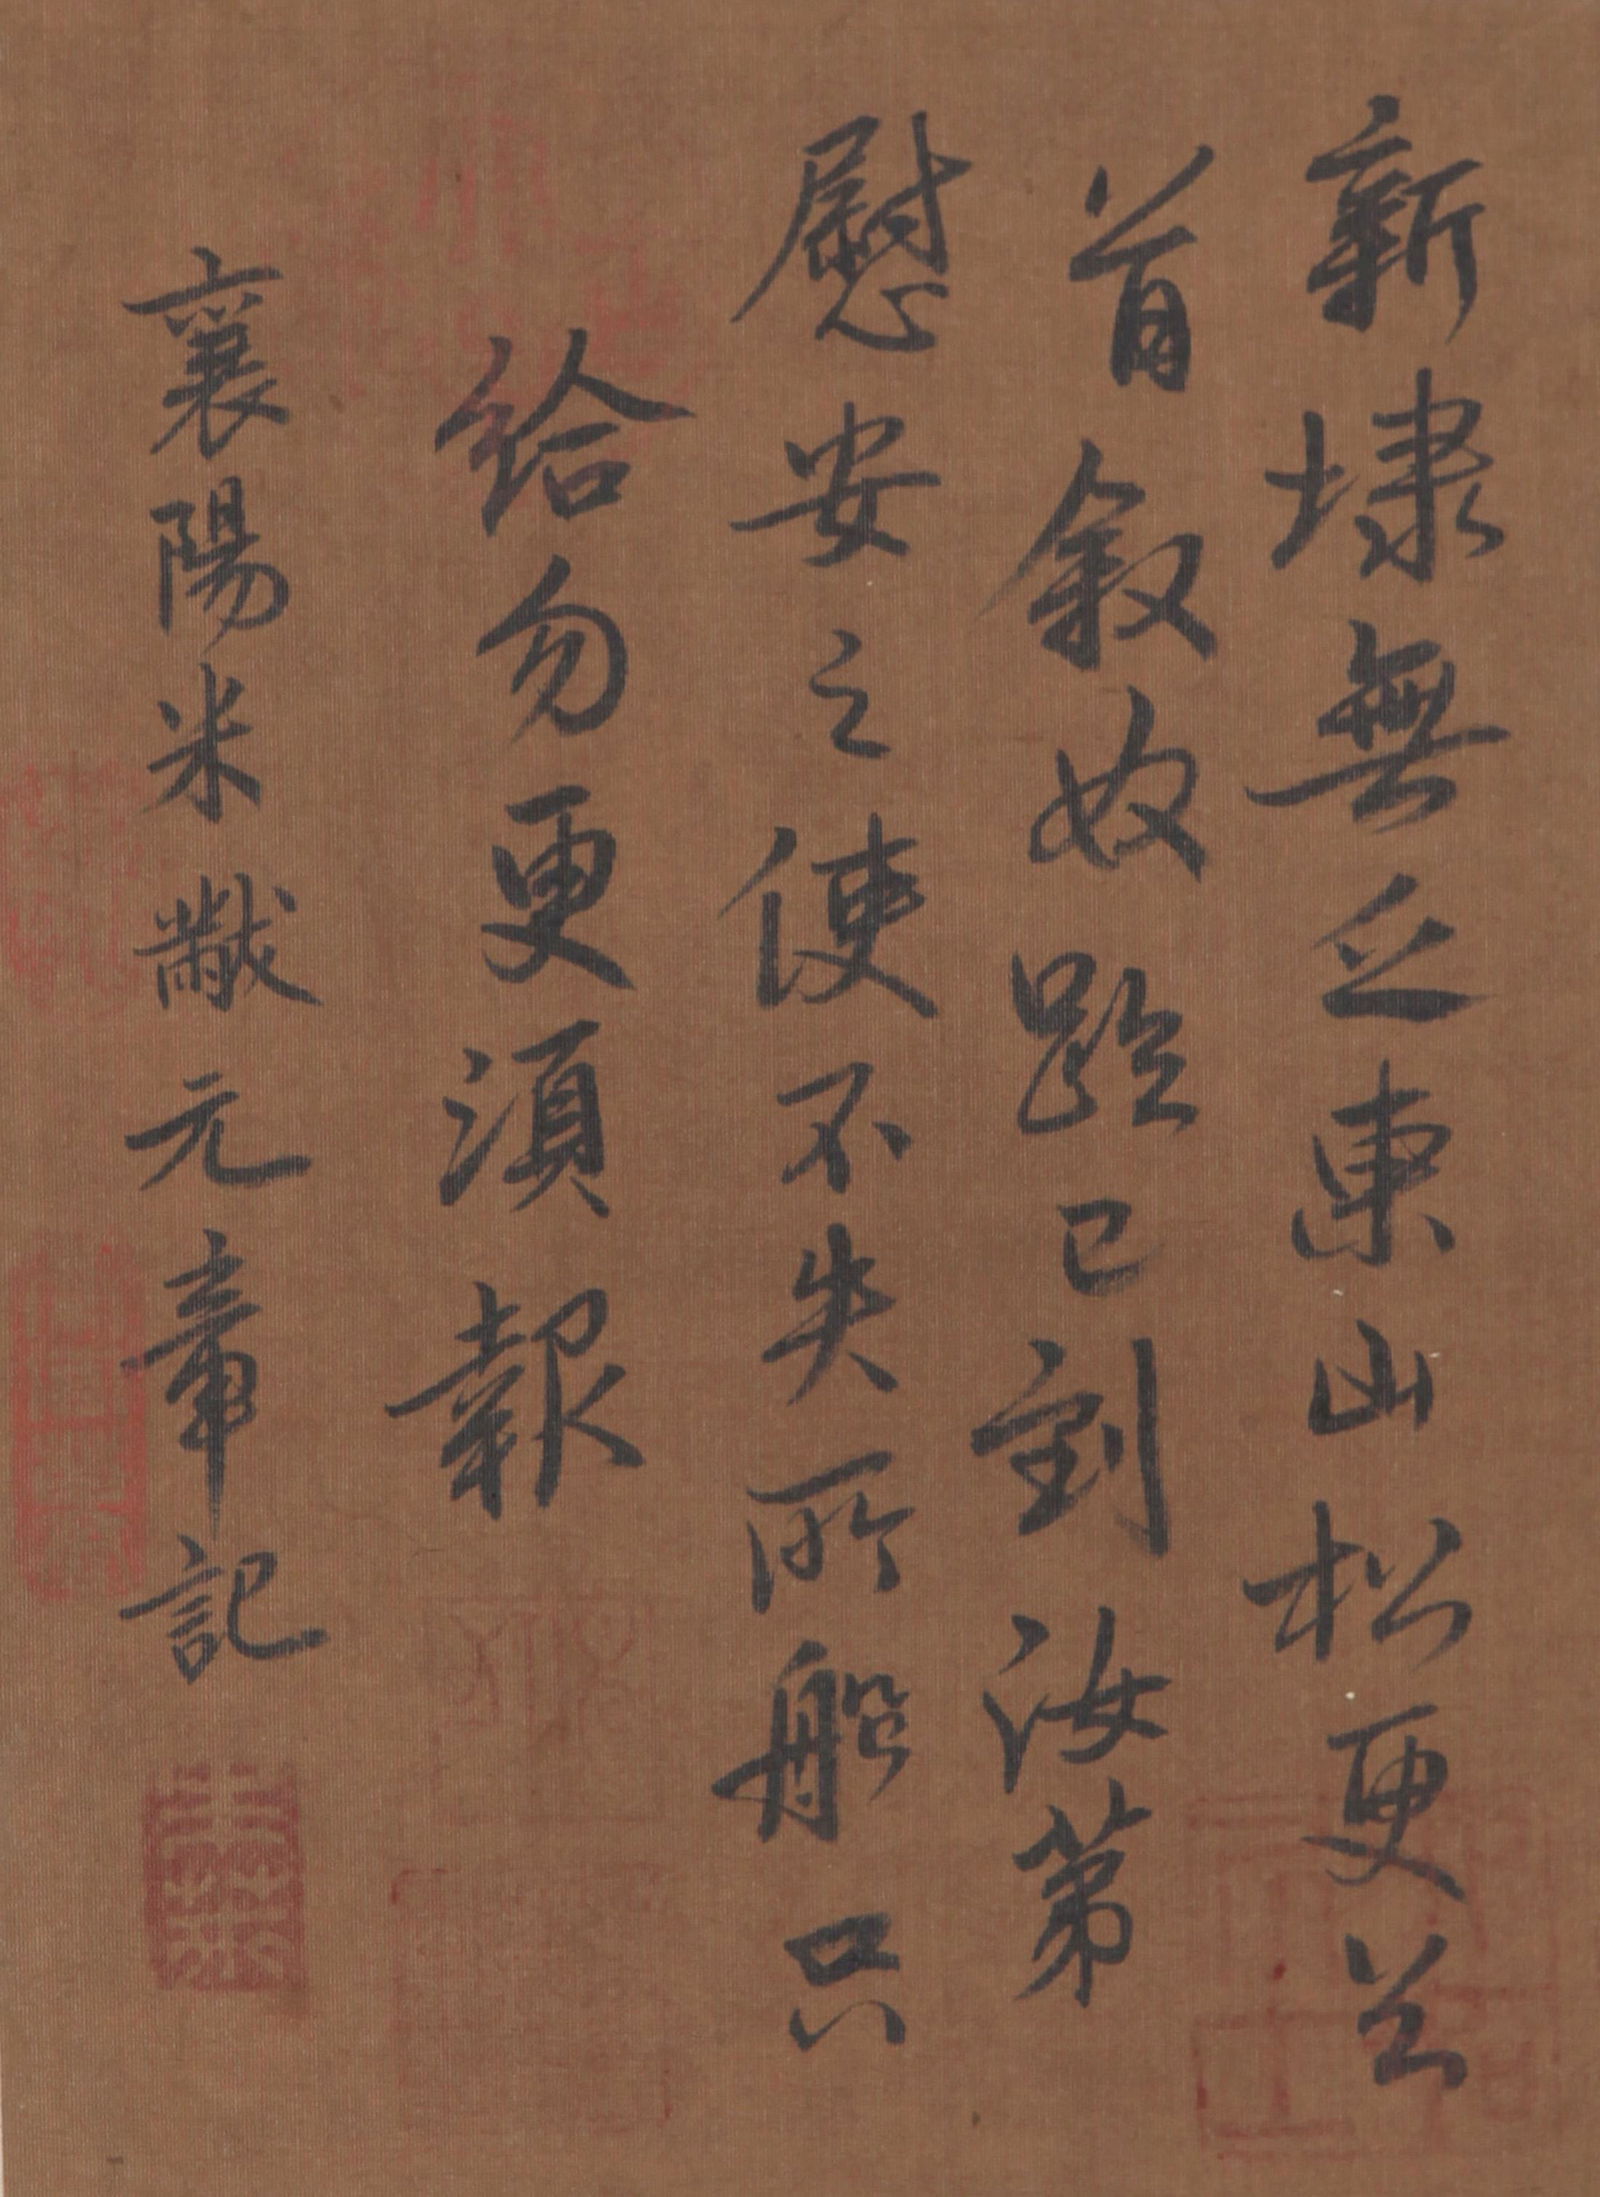 新埭無乏東山松更送
首敘奴跆已到汝第
慰安之使不失所船只
給勿更須報
襄陽米黻元章記